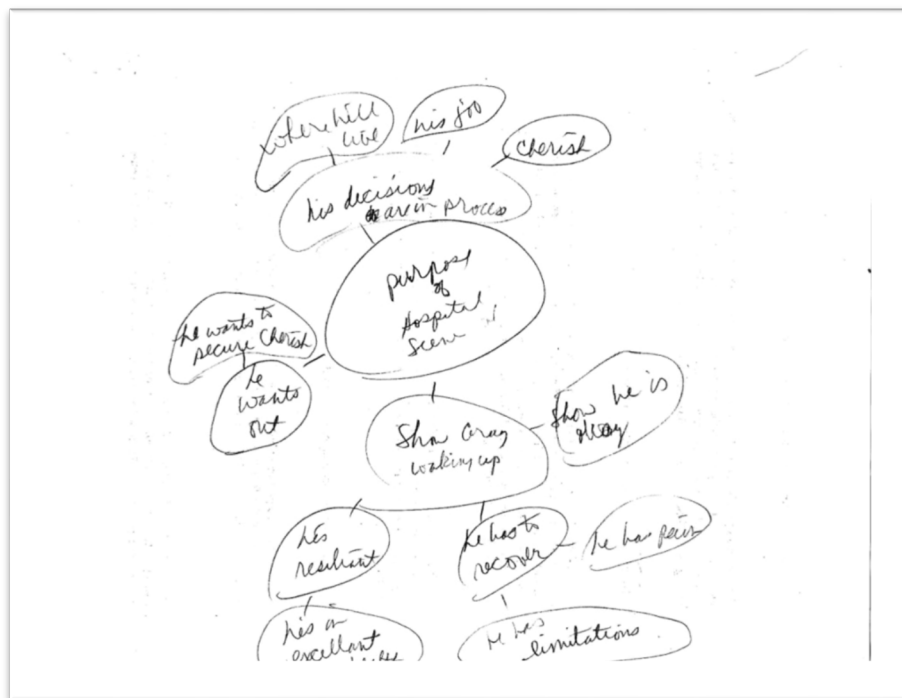 where he'll
live
his job
cherish
his decisions
are in process
purpose
of
Hospital
Scene
he wants to
secure Cherish
he
wants
out
Show
waking up
Show he is
okay
he's
resiliant
he has to
recover
he has pain
he's in
excellant
he has
limitations